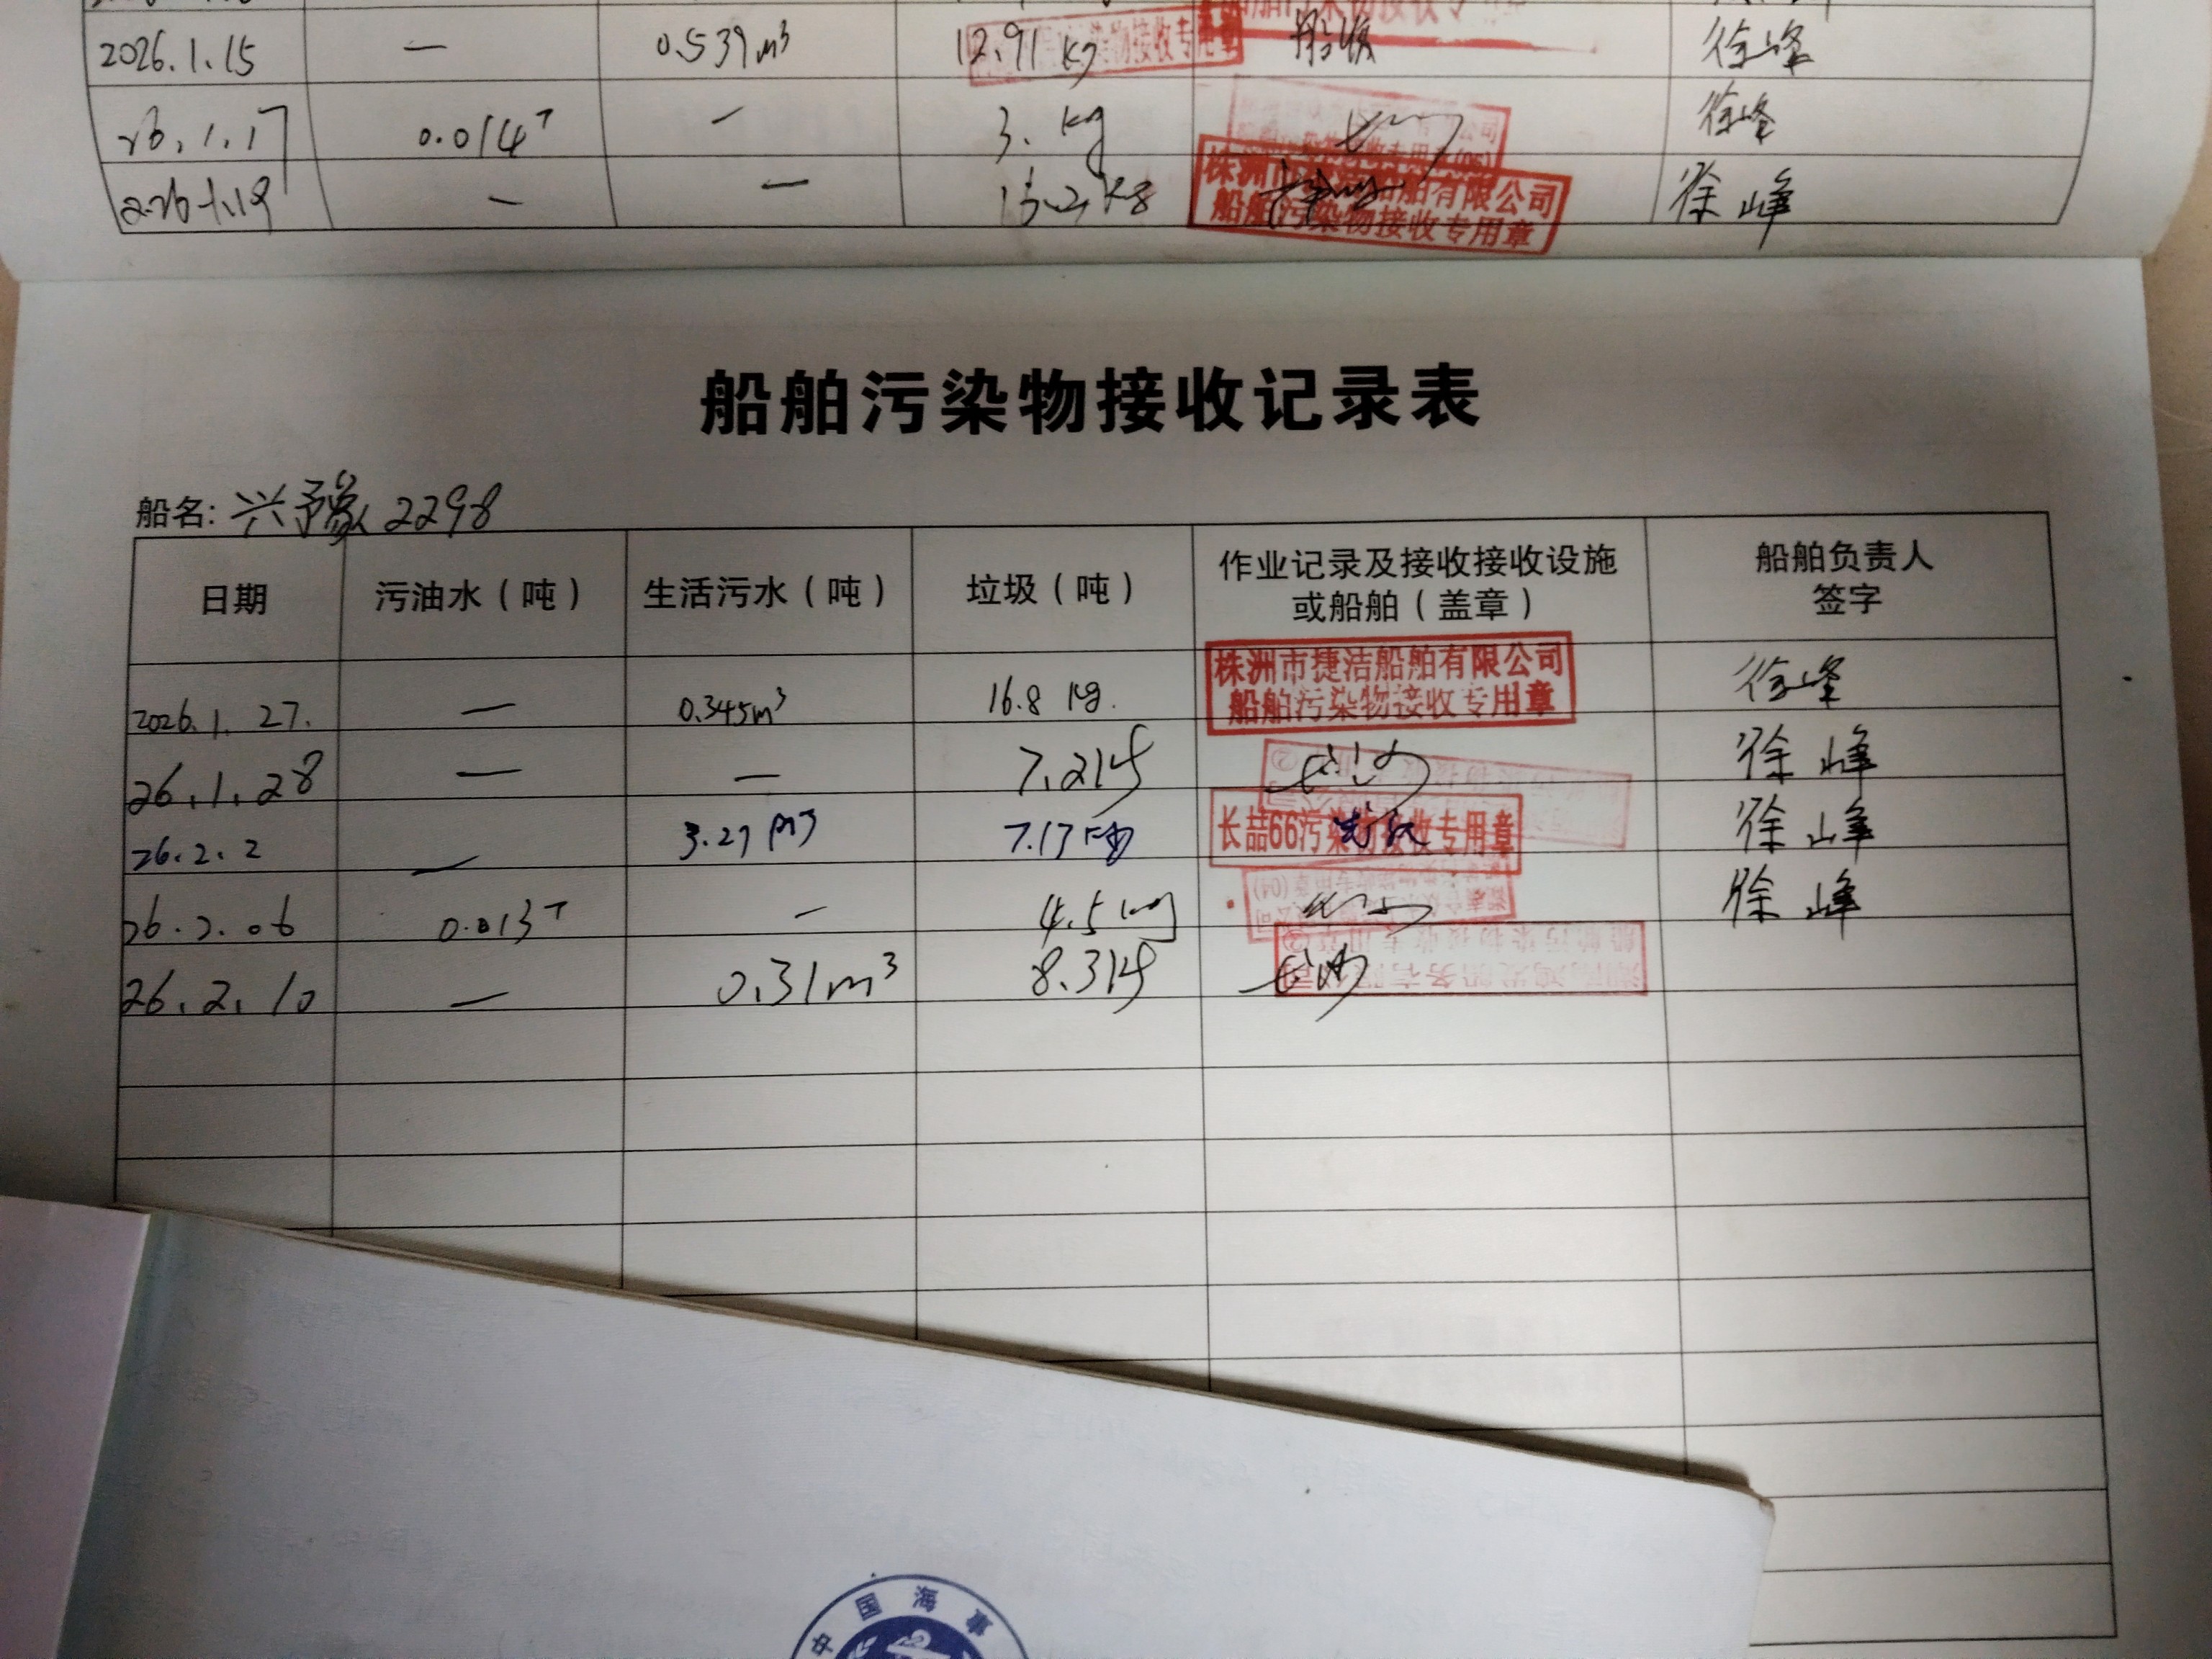 2026.1.15 — 0.539m³ 12.91 kg 徐峰
26.1.17 0.014T — 3. kg 徐峰
2026.1.19 — — kg 徐峰
株洲市捷洁船舶有限公司
船舶污染物接收专用章
船舶污染物接收记录表
船名: 兴豫2298
日期 污油水（吨） 生活污水（吨） 垃圾（吨） 作业记录及接收接收设施或船舶（盖章） 船舶负责人签字
2026.1.27. — 0.345m³ 16.8 kg. 株洲市捷洁船舶有限公司 船舶污染物接收专用章 徐峰
26.1.28 — — 7.2kg 长沙 徐峰
26.2.2 — 3.27m³ 7.17kg 长喆66污染物接收专用章 徐峰
26.2.06 0.013T — 4.5kg 徐峰
26.2.10 — 0.31m³ 8.3kg 长沙
中国海事